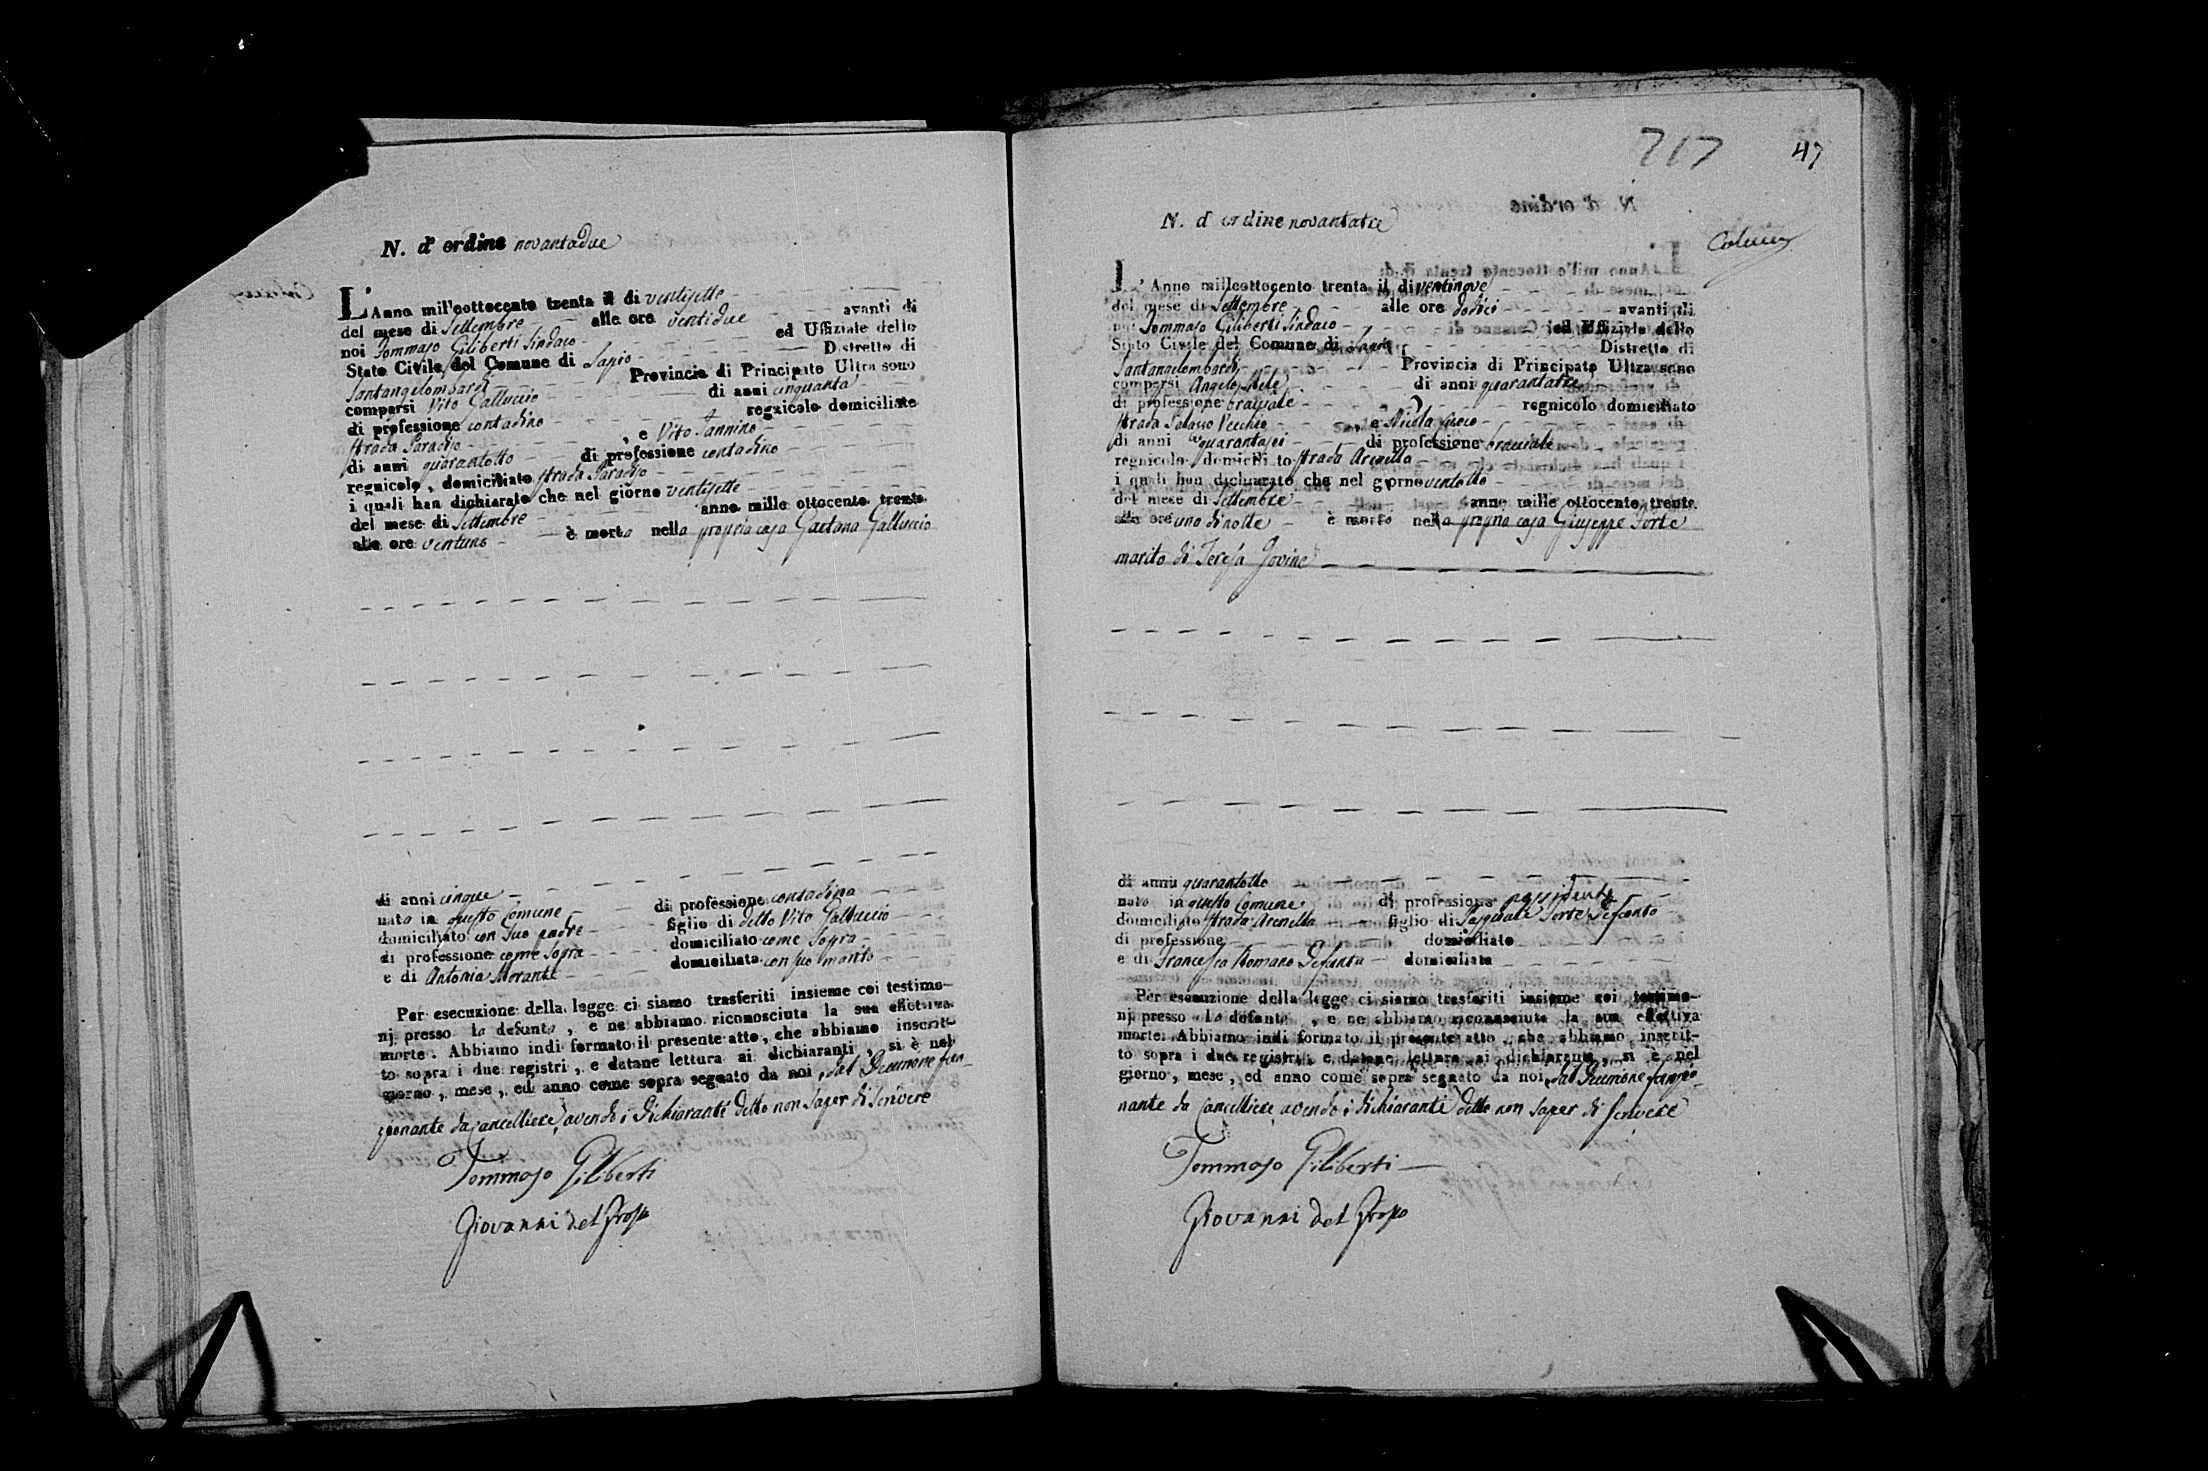 N. d' ordine novantadue
L'Anno mill'eottocento trenta il di ventisette
del mese di Settembre alle ore ventidue avanti di
noi Tommaso Giliberti Sindaco ed Uffiziale dello
Stato Civile del Comune di Lapio Distretto di
Santangelombardi Provincia di Principato Ultra sono
comparsi Vito Galluccio di anni cinquanta
di professione contadino regnicolo domiciliato
strada Paradiso , e Vito Iannino
di anni quarantotto di professione contadino
regnicolo, domiciliato strada Paradiso
i quali han dichiarato che nel giorno ventisette
del mese di Settembre anno mille ottocento trenta
alle ore ventuno è morta nella propria casa Gaetana Galluccio
di anni cinque di professione contadina
nata in questo Comune figlio di detto Vito Galluccio
domiciliato con suo padre domiciliato come sopra
di professione come sopra domiciliata con suo marito
e di Antonia Morante
Per esecuzione della legge ci siamo trasferiti insieme coi testimo-
nj presso la defunta, e ne abbiamo riconosciuta la sua effettiva
morte. Abbiamo indi formato il presente atto, che abbiamo inscrit-
to sopra i due registri, e datane lettura ai dichiaranti, si è nel
giorno, mese, ed anno come sopra segnato da noi, dal Decurione fun-
zionante da Cancelliere, avendo i dichiaranti detto non saper di scrivere
Tommaso Giliberti
Giovanni del Grosso
717
47
N. d' ordine novantatre
L'Anno millottocento trenta il di ventinove
del mese di Settembre alle ore dodici avanti di
noi Tommaso Giliberti Sindaco ed Uffiziale dello
Stato Civile del Comune di Lapio Distretto di
Santangelombardi Provincia di Principato Ultra sono
comparsi Angelo Mele di anni quarantatre
di professione bracciale regnicolo domiciliato
strada Palazzo Vecchio , e Nicola Greco
di anni quarantasei di professione bracciale
regnicolo domiciliato strada Arenella
i quali han dichiarato che nel giorno ventotto
del mese di Settembre anno mille ottocento trenta
alle ore uno di notte è morto nella propria casa Giuseppe Forte
marito di Teresa Iovine
di anni quarantotto di professione possidente
nato in questo Comune figlio di Pasquale Forte Defonto
domiciliato strada Arenella
di professione domiciliato
e di Francesca Romano Defonta domiciliata
Per esecuzione della legge ci siamo trasferiti insieme coi testimo-
nj presso lo defonto, e ne abbiamo riconosciuta la sua effettiva
morte. Abbiamo indi formato il presente atto, che abbiamo inscrit-
to sopra i due registri, e datane lettura ai dichiaranti, si è nel
giorno, mese, ed anno come sopra segnato da noi, dal Decurione funzio-
nante da Cancelliere avendo i dichiaranti detto non saper di scrivere
Tommaso Giliberti
Giovanni del Grosso